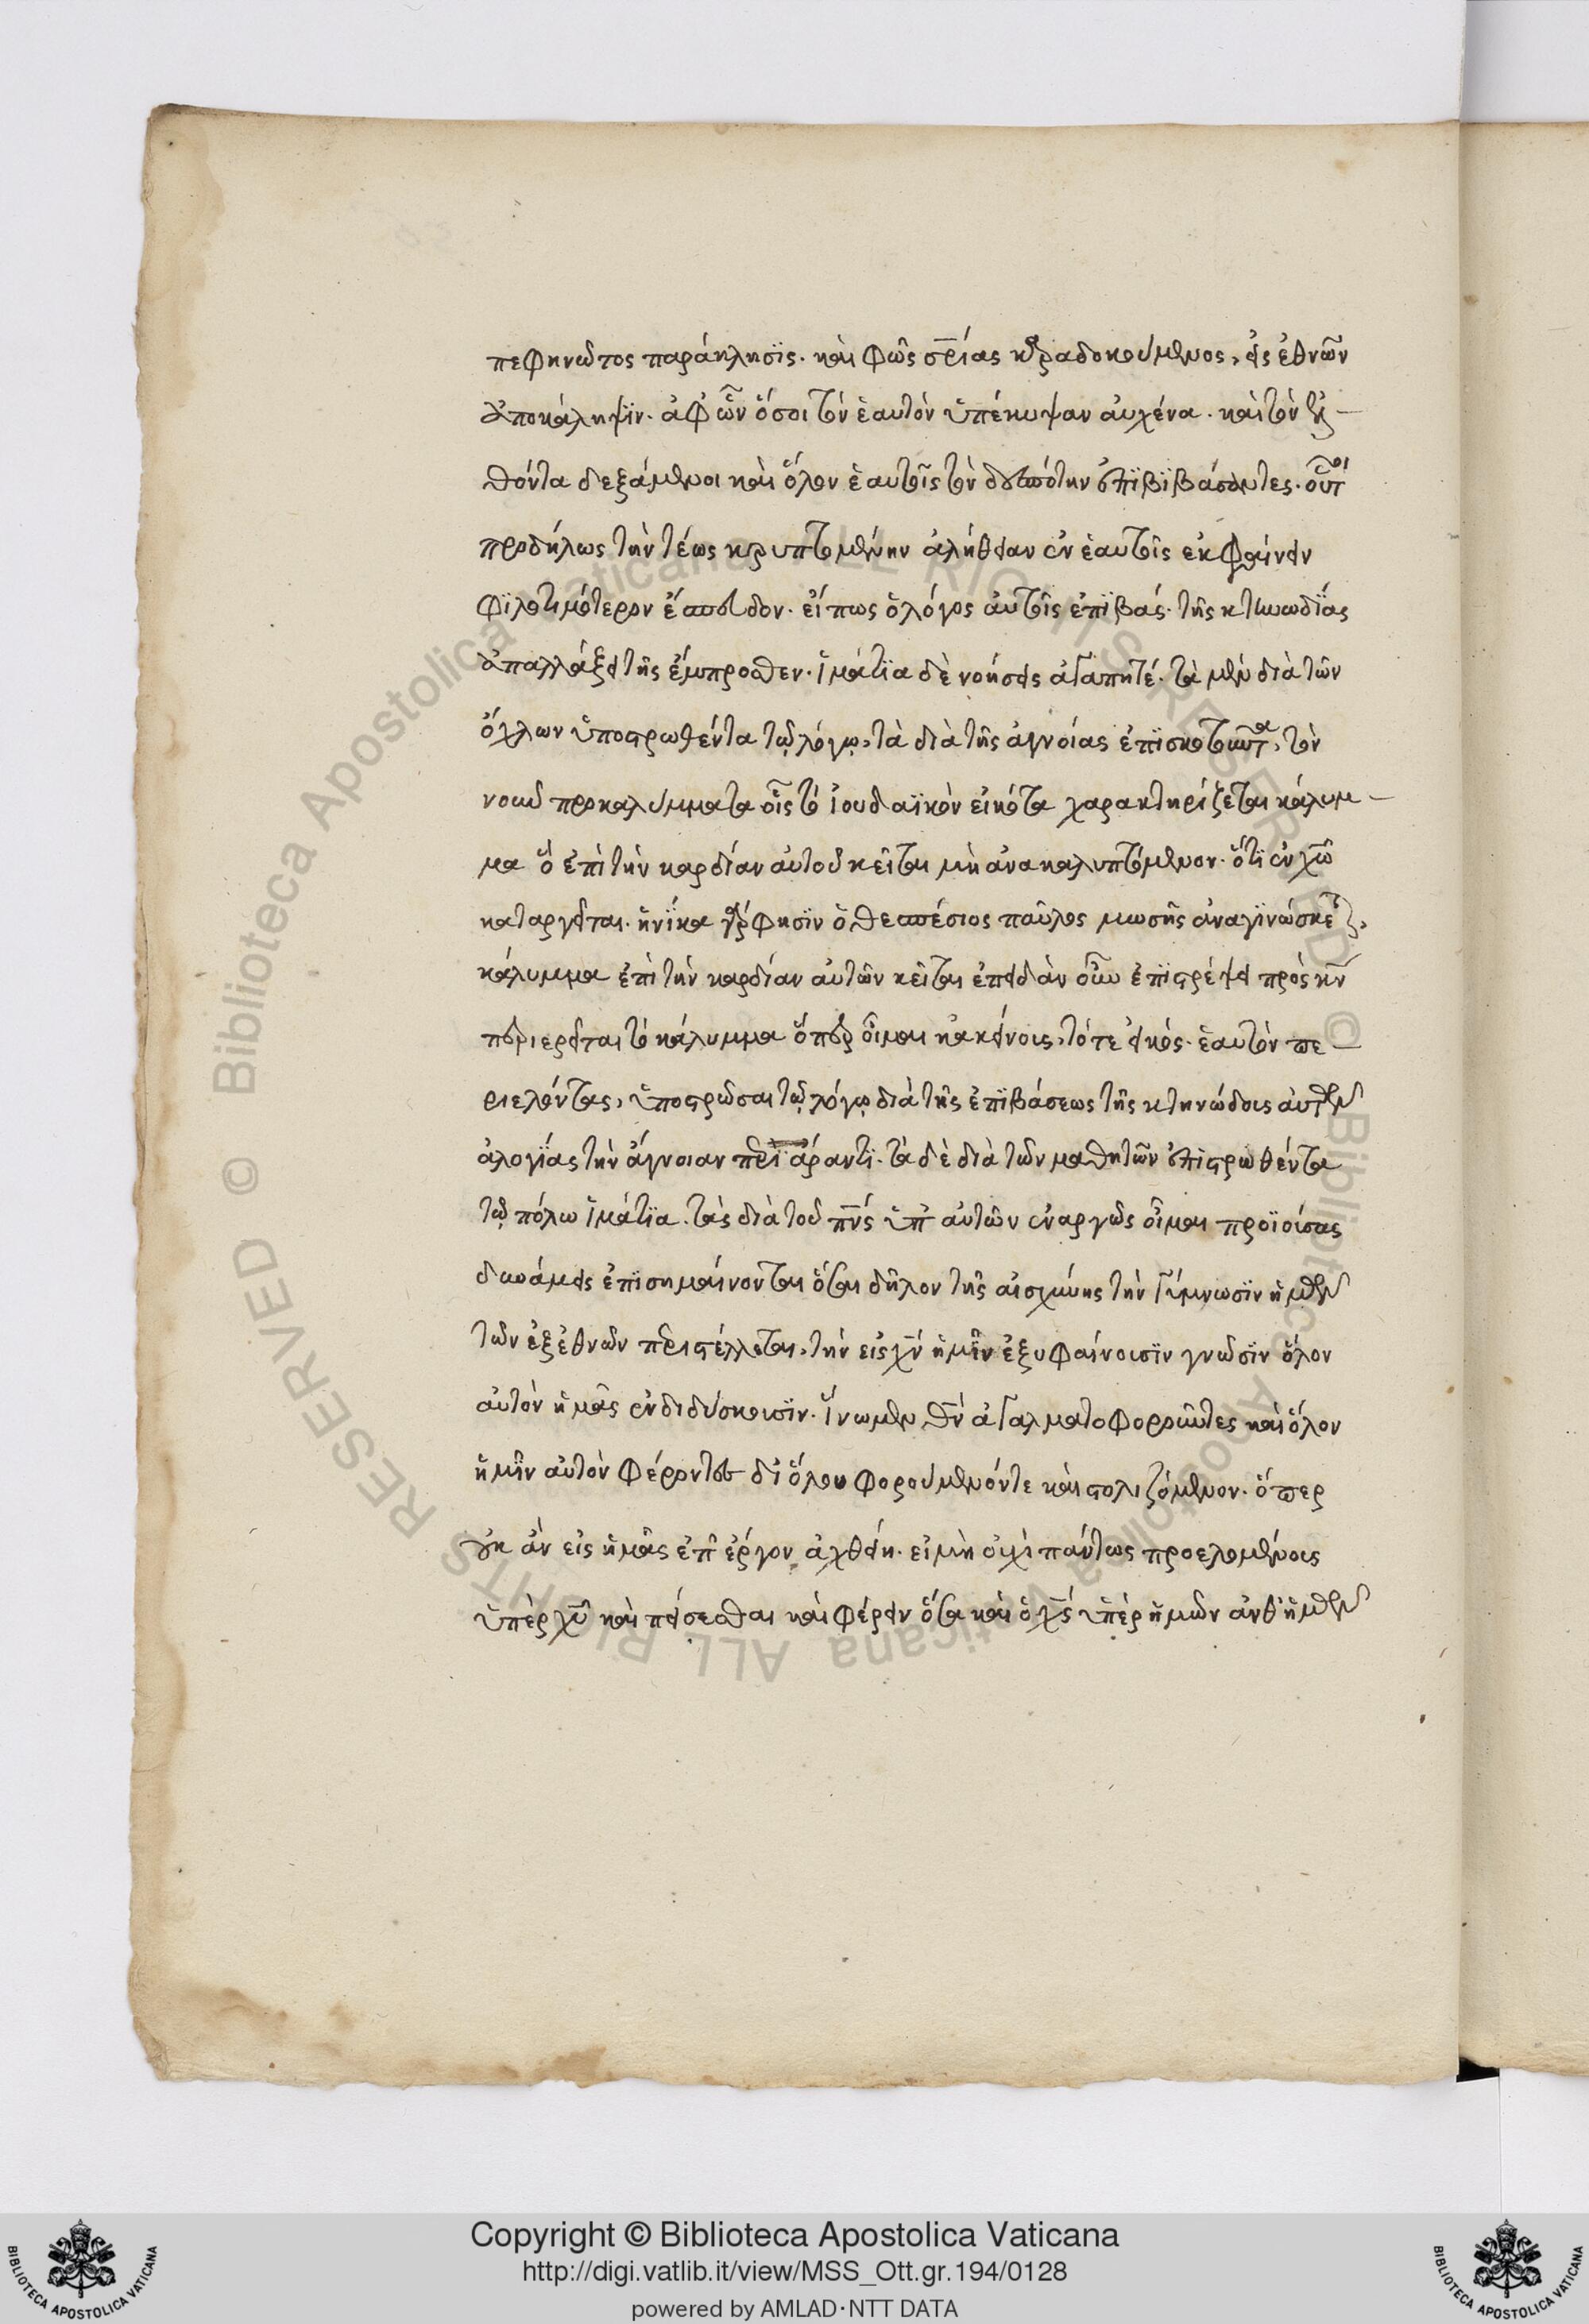 πεφηνότος παράκλησις. καὶ φῶς σρίας καραδοκούμενος, εἰς ἐθνῶν
ἀποκάλυψιν. ἀφ ὧν ὅσοι τὸν ἑαυτὸν ὑπέκυψαν αὐχένα. καὶ τὸν ἐλ
θόντα δεξάμενοι καὶ ὅλον ἑαυτοῖς τὸν δεσπότην ἐπιβιβάσαντες. οὗτοι
προδήλως τὴν τέως κρυπτομένην ἀλήθειαν ἐν ἑαυτοῖς ἐκφαίνειν
φιλοτιμότερον ἔσπευδον. εἴπως ὁ λόγος αὐτοῖς ἐπιβάς. τῆς κτηνωδίας
ἀπαλλάξει τῆς ἔμπροσθεν. ἱμάτια δὲ νοήσεις ἀγαπητέ. τὰ μὲν διὰ τῶν
ὄχλων ὑποστρωθέντα τῷ λόγῳ, τὰ διὰ τῆς ἀγνοίας ἐπισκοτοῦντα, τὸν
νοῦν προκαλύμματα οἷς τὸ ἰουδαϊκὸν εἰκότα χαρακτηρίζεται κάλυμ
μα ὃ ἐπὶ τὴν καρδίαν αὐτοῦ κεῖται μὴ ἀνακαλυπτόμενον. ὅτι ἐν χῶ
καταργεῖται. ἡνίκα γάρ φησιν ὁ θεσπέσιος παῦλος μωσῆς ἀναγινώσκεται,
κάλυμμα ἐπὶ τὴν καρδίαν αὐτῶν κεῖται ἐπειδὰν οὖν ἐπιστρέψει πρὸς κν
περιερεῖται τὸ κάλυμμα ὅπερ οἶμαι κἀκείνοις, τότε εἰκός. ἑαυτὸν πε
ριελόντας, ὑποστρῶσαι τῷ λόγῳ διὰ τῆς ἐπιβάσεως τῆς κτηνώδους αὐτῶν
ἀλογίας τὴν ἄγνοιαν περιάραντι. τὰ δὲ διὰ τῶν μαθητῶν ἐπιστρωθέντα
τῷ πόλω ἱμάτια. τὰς διὰ τοῦ πνς ὑπ αὐτῶν ἐναργῶς οἶμαι προϊοίσας
δυνάμεις ἐπισημαίνονται ὅσαι δῆλον τῆς αἰσχύνης τὴν γύμνωσιν ἡμῶν
τῶν ἐξ ἐθνῶν περιστέλλεται, τὴν εἰς χν ἡμῖν ἐξυφαίνουσιν γνῶσιν ὅλον
αὐτὸν ἡμᾶς ἐνδιδύσκουσιν. ἵνωμεν θν ἀγαλματοφοροῦντες καὶ ὅλον
ἡμῖν αὐτὸν φέροντες δι ὅλου φορούμενόντε καὶ στολιζόμενον. ὅπερ
οὐκ ἂν εἰς ἡμᾶς ἐπ ἔργον ἀχθείη. εἰ μὴ οὐχὶ πάντως προελομένοις
ὑπὲρ χῦ καὶ πείσεσθαι καὶ φέρειν ὅσα καὶ ὁ χς ὑπὲρ ἡμῶν ἀνθ ἡμῶν
Copyright © Biblioteca Apostolica Vaticana
http://digi.vatlib.it/view/MSS_Ott.gr.194/0128
powered by AMLAD·NTT DATA